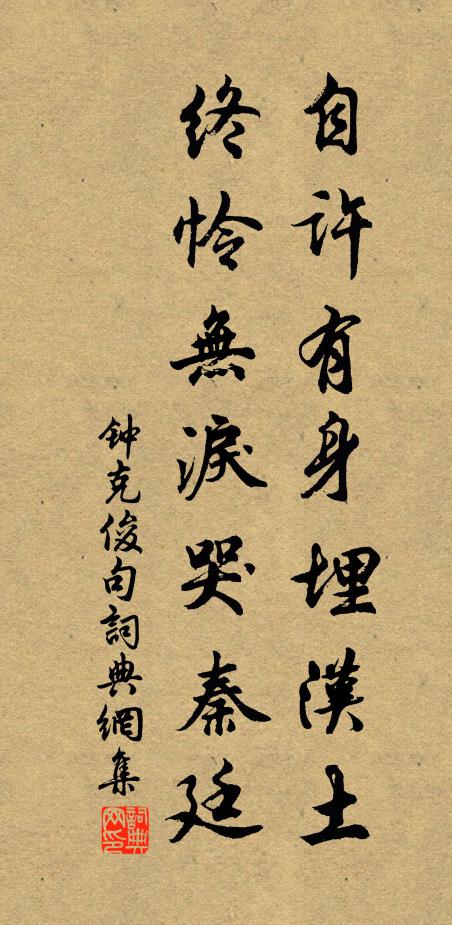 自許有身埋漢土
終怜無淚哭秦廷
钟克俊句詞典網集
詞典网印